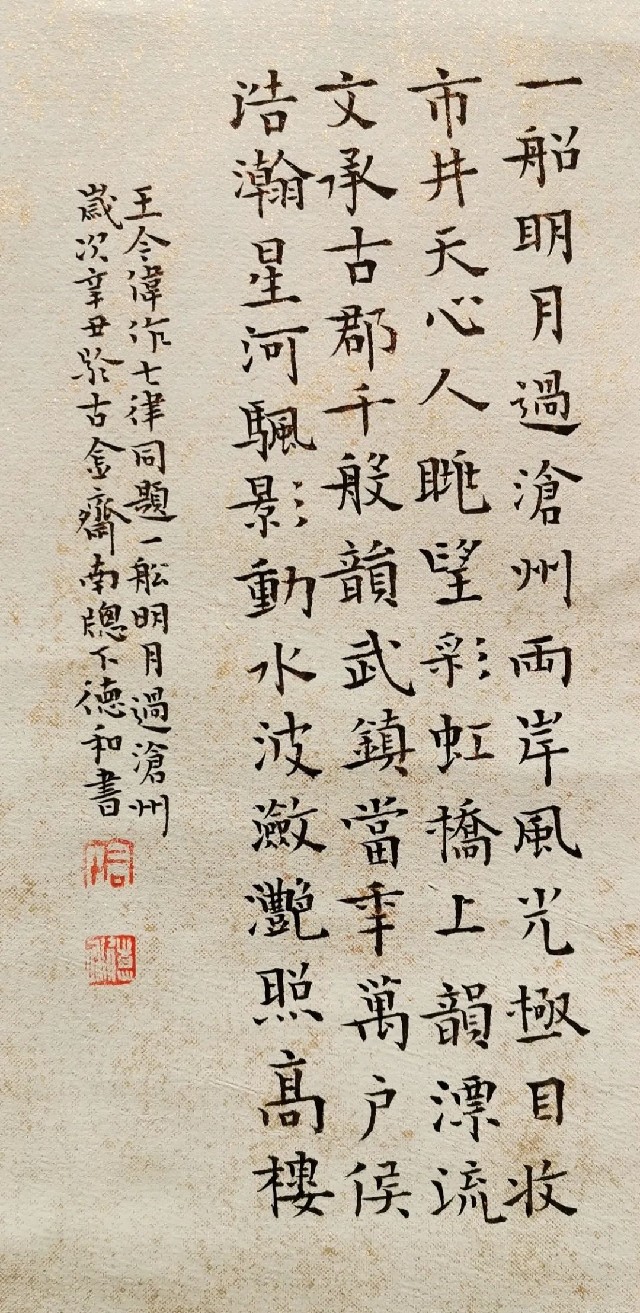 一船明月過滄州兩岸風光極目收
市井天心人眺望彩虹橋上韻漂流
文承古郡千般韻武鎮當年萬户侯
浩瀚星河颿影動水波瀲灔照高樓
王令偉作七律同題一船明月過滄州
歲次辛丑於古金齋南牕下德和書